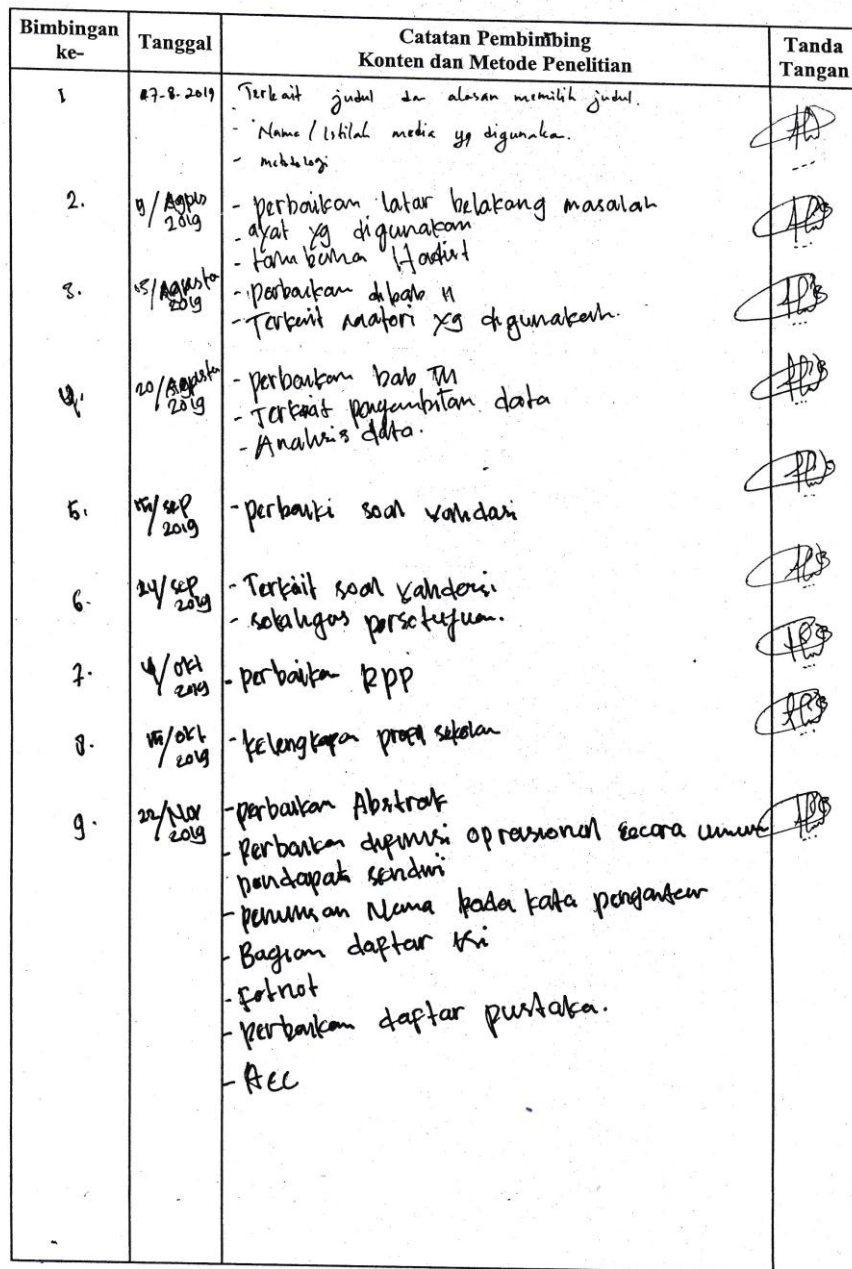 Bimbingan ke- Tanggal Catatan Pembimbing Konten dan Metode Penelitian Tanda Tangan
1 7-8-2019 Terkait judul dan alasan memilih judul.
- Nama / Istilah media yg digunaka.
- metodologi
2. 9/Agus 2019 - perbaikan latar belakang masalah
- ayat yg digunakan
- Hadist
3. 15/Agustu 2019 - perbaikan di bab II
- Terkait materi yg digunakan.
4. 20/Agustu 2019 - perbaikan bab III
- Terkait pengambilan data
- Analisis data.
5. /sep 2019 - perbaiki soal validasi
6. 24/sep 2019 - Terkait soal validasi
- sekaligus persetujuan.
7. 4/okt 2019 - perbaikan RPP
8. /okt 2019 - kelengkapan profil sekolah
9. 22/Nov 2019 - perbaikan Abstrak
- Perbaikan definisi oprasional secara umum
pendapat sendiri
- penulisan Nama pada kata pengantar
- Bagian daftar isi
- fotnot
- perbaikan daftar pustaka.
- Acc